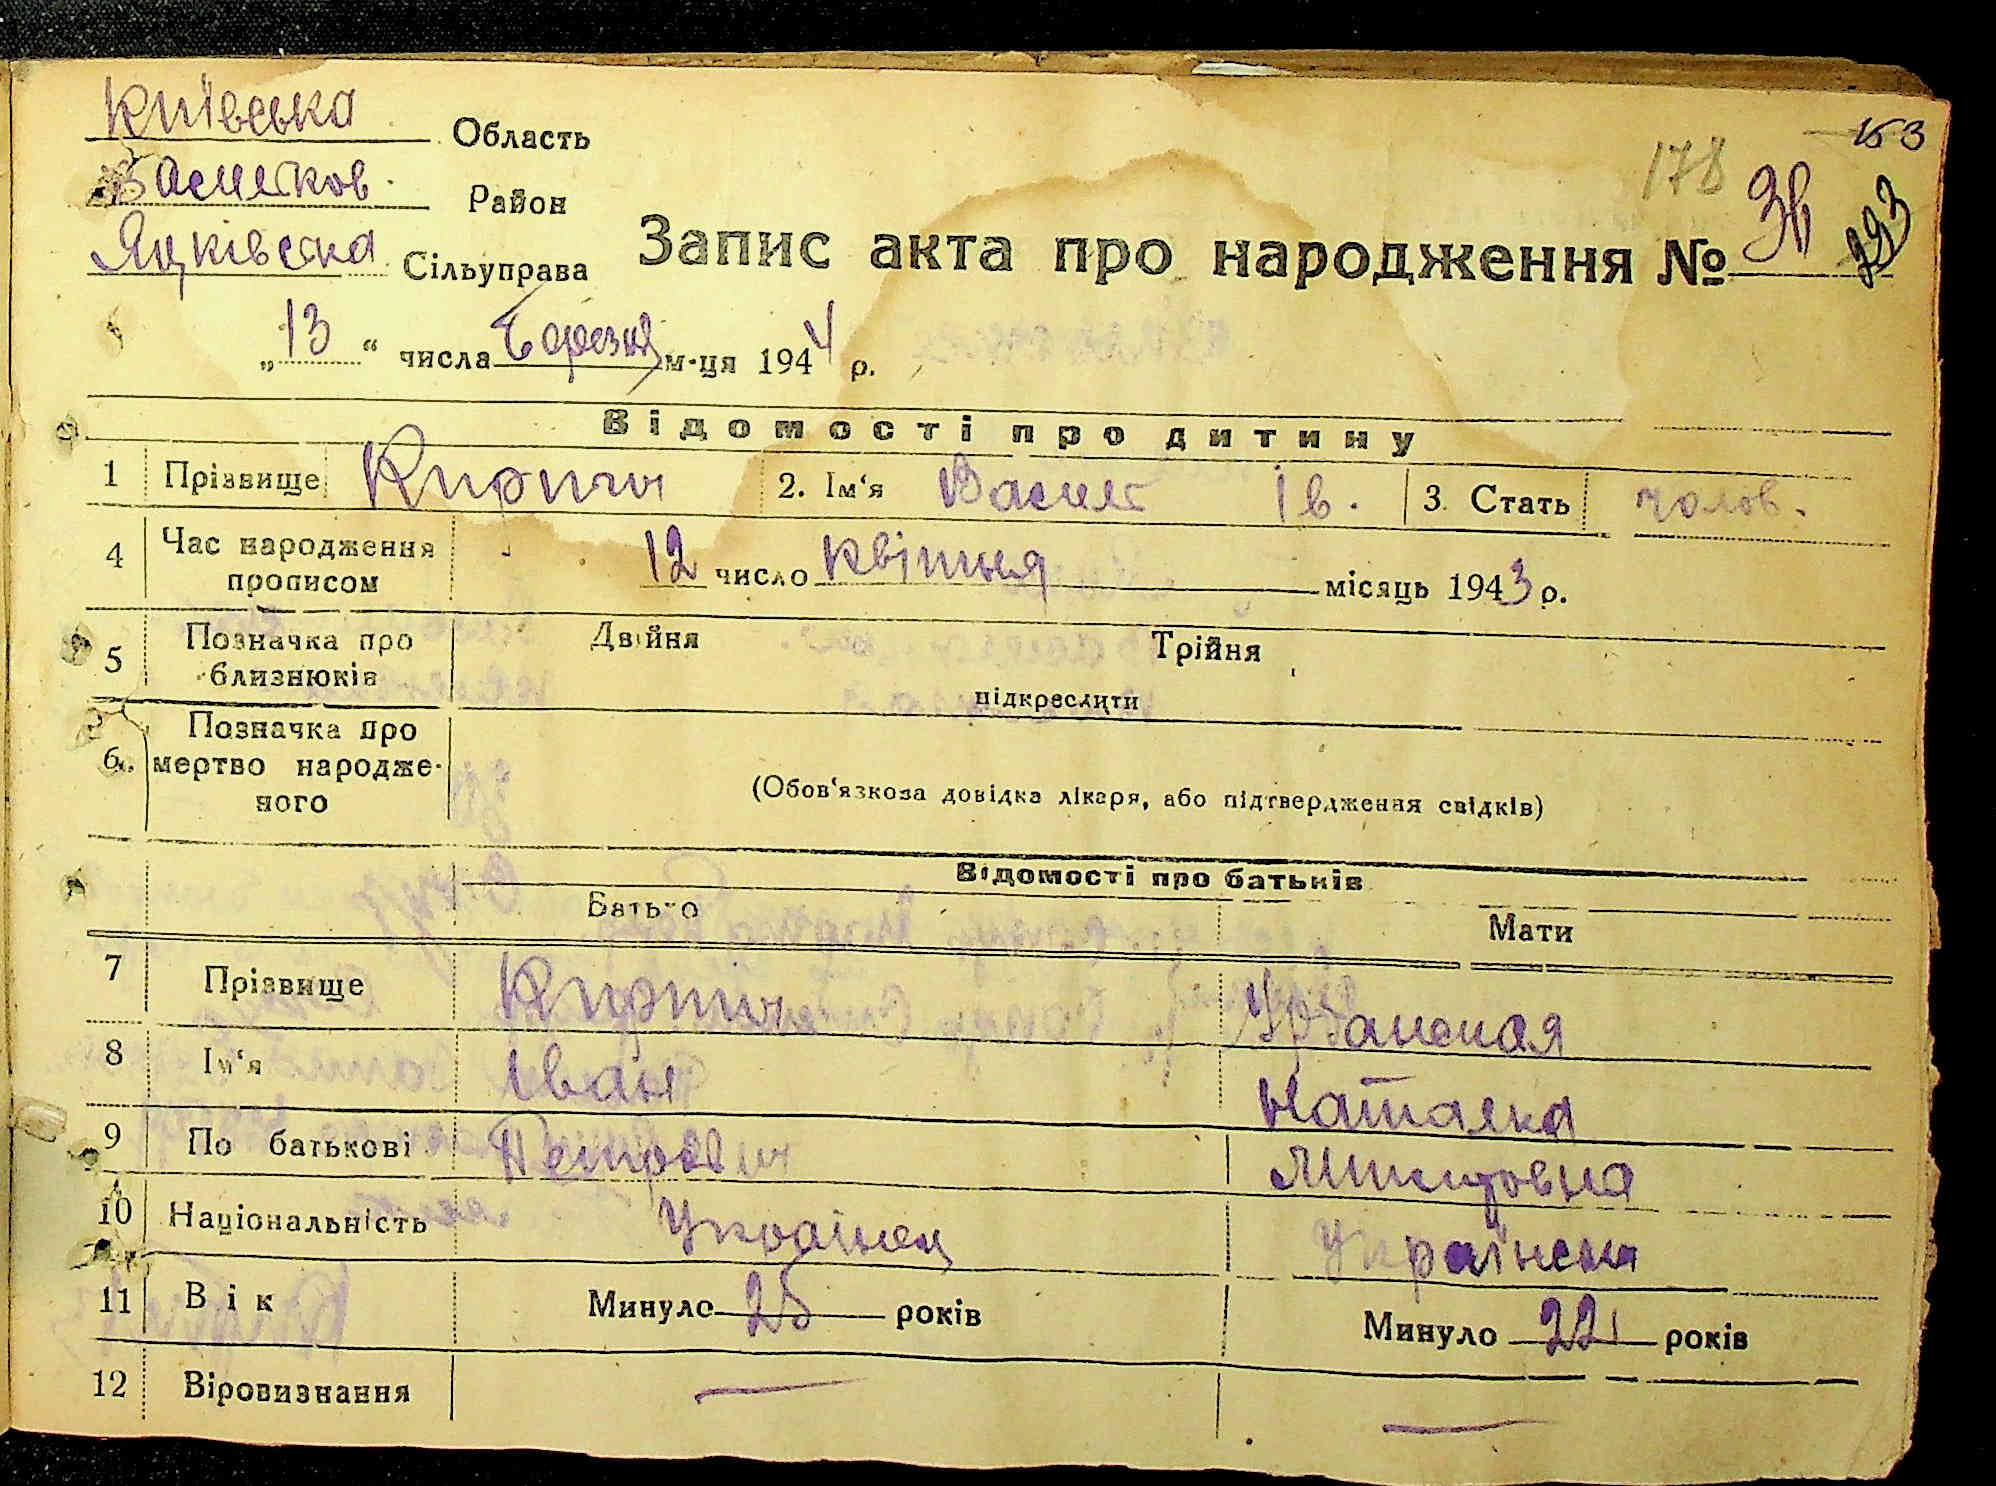 Київська Область
Васильков Район
Яцківська Сільуправа
153
178
293
Запис акта про народження №
„13“ числа Березня м-ця 1944 р.
Відомості про дитину
1 Прізвище Кирпич 2. Ім‘я Василь Ів. 3. Стать чолов.
4 Час народження прописом 12 число квітня місяць 1943 р.
5 Позначка про близнюків Двійня Трійня
підкреслити
6. Позначка про мертво народже-
ного
(Обов‘язкова довідка лікаря, або підтвердження свідків)
Відомості про батьків
Батько Мати
7 Прізвище Кирпич Урбанская
8 Ім‘я Іван Наталка
9 По батькові Петрович Микитовна
10 Національність Українец Українска
11 Вік Минуло 25 років Минуло 22 років
12 Віровизнання — —